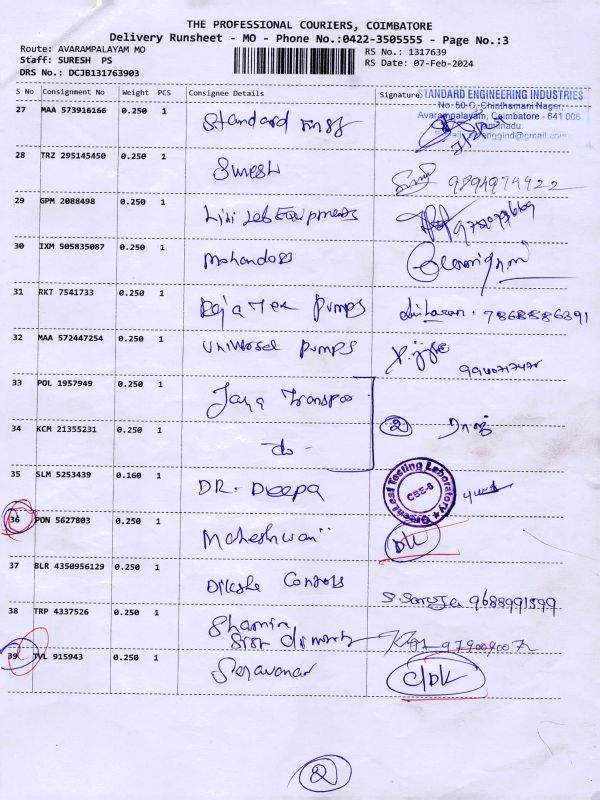 THE PROFESSIONAL COURIERS, COIMBATORE
Delivery Runsheet - MO - Phone No.:0422-3505555 - Page No.:3
Route: AVARAMPALAYAM MO
RS No.: 1317639
Staff: SURESH PS
RS Date: 07-Feb-2024
DRS No.: DCJB131763903
S No Consignment No Weight PCS Consignee Details Signature
STANDARD ENGINEERING INDUSTRIES
No: 50-C, Chinthamani Nager,
Avarampalayam, Coimbatore - 641 006
Tamilnadu.
27 MAA 573916166 0.250 1 Standard
28 TRZ 295145450 0.250 1 Suresh 9894974922
29 GPM 2088498 0.250 1 Lab Equipments
30 IXM 505835087 0.250 1 Mohandoss
31 RKT 7541733 0.250 1 Raja Tex Pumps 7868586391
32 MAA 572447254 0.250 1 Universel Pumps
33 POL 1957949 0.250 1 Jaya Transpo
34 KCM 21355231 0.250 1 do - 2
35 SLM 5253439 0.160 1 DR. Deepa
Testing Laboratory
CBE-6
36 PON 5627803 0.250 1 Maheshwari DK
37 BLR 4350956129 0.250 1 Diksha Controls S. Saroja 9688991899
38 TRP 4337526 0.250 1 Shamin
39 TVL 915943 0.250 1 Saravanan C/DK
2